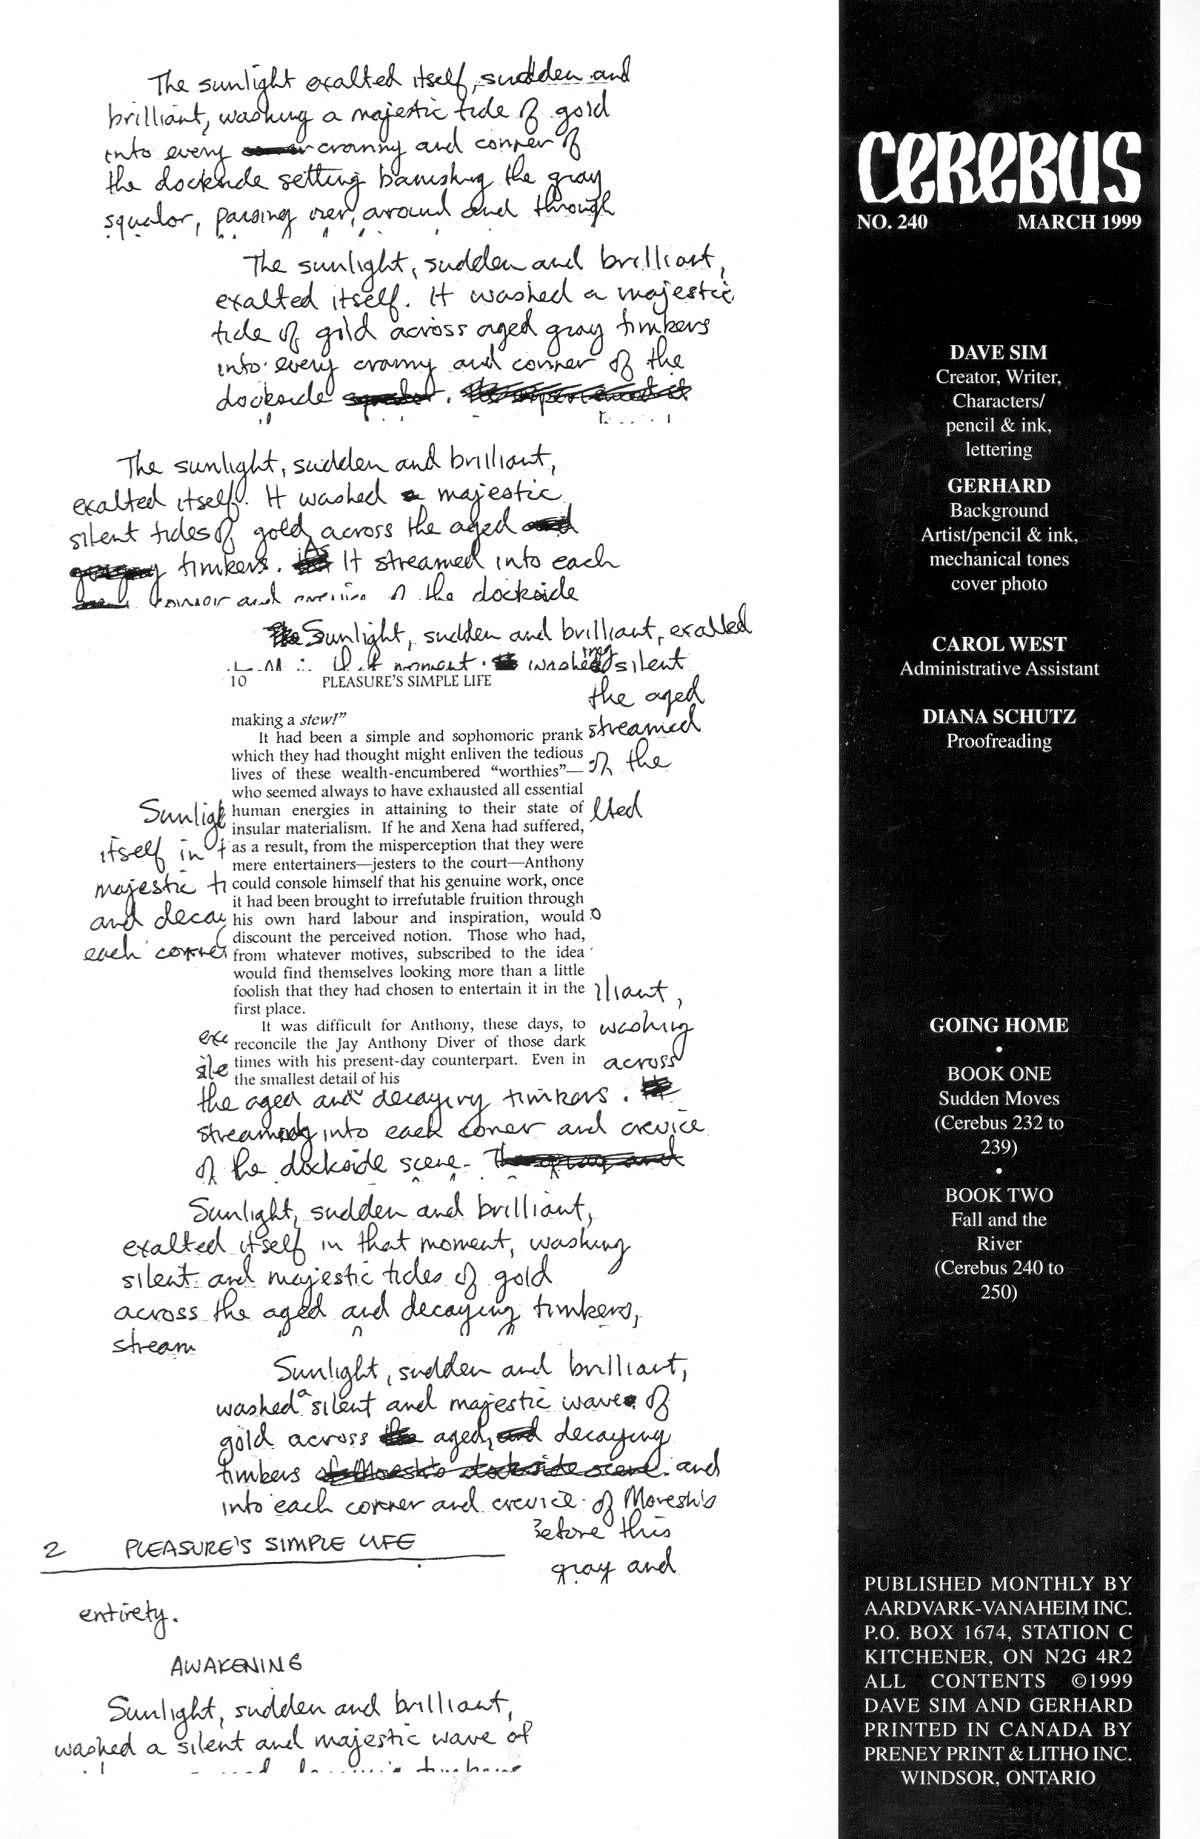 The sunlight exalted itself, sudden and
brilliant, washing a majestic tide of gold
into every cranny and corner of
the dockside setting banishing the gray
squalor, passing over, around and through
The sunlight, sudden and brilliant,
exalted itself. It washed a majestic
tide of gold across aged gray timbers
into every cranny and corner of the
dockside
The sunlight, sudden and brilliant,
exalted itself. It washed majestic
silent tides of gold across the aged
timbers. It streamed into each
corner and crevice of the dockside
Sunlight, sudden and brilliant, exalted
that moment. washing silent
10 PLEASURE'S SIMPLE LIFE
the aged
streamed
of the
lted
making a stew!"
It had been a simple and sophomoric prank
which they had thought might enliven the tedious
lives of these wealth-encumbered "worthies"—
who seemed always to have exhausted all essential
human energies in attaining to their state of
insular materialism. If he and Xena had suffered,
as a result, from the misperception that they were
mere entertainers—jesters to the court—Anthony
could console himself that his genuine work, once
it had been brought to irrefutable fruition through
his own hard labour and inspiration, would
discount the perceived notion. Those who had,
from whatever motives, subscribed to the idea
would find themselves looking more than a little
foolish that they had chosen to entertain it in the
first place.
It was difficult for Anthony, these days, to
reconcile the Jay Anthony Diver of those dark
times with his present-day counterpart. Even in
the smallest detail of his
Sunlig
itself in t
majestic ti
and decay
each corner
lliant,
exc washing
sile across
the aged and decaying timbers.
streaming into each corner and crevice
of the dockside scene.
Sunlight, sudden and brilliant,
exalted itself in that moment, washing
silent and majestic tides of gold
across the aged and decaying timbers,
stream
Sunlight, sudden and brilliant,
washed a silent and majestic wave of
gold across aged, decaying
timbers and
into each corner and crevice of Moresh's
Before this
gray and
2 PLEASURE'S SIMPLE LIFE
entirety.
AWAKENING
Sunlight, sudden and brilliant,
washed a silent and majestic wave of
CEREBUS
NO. 240 MARCH 1999
DAVE SIM
Creator, Writer,
Characters/
pencil & ink,
lettering
GERHARD
Background
Artist/pencil & ink,
mechanical tones
cover photo
CAROL WEST
Administrative Assistant
DIANA SCHUTZ
Proofreading
GOING HOME
•
BOOK ONE
Sudden Moves
(Cerebus 232 to
239)
•
BOOK TWO
Fall and the
River
(Cerebus 240 to
250)
PUBLISHED MONTHLY BY
AARDVARK-VANAHEIM INC.
P.O. BOX 1674, STATION C
KITCHENER, ON N2G 4R2
ALL CONTENTS ©1999
DAVE SIM AND GERHARD
PRINTED IN CANADA BY
PRENEY PRINT & LITHO INC.
WINDSOR, ONTARIO